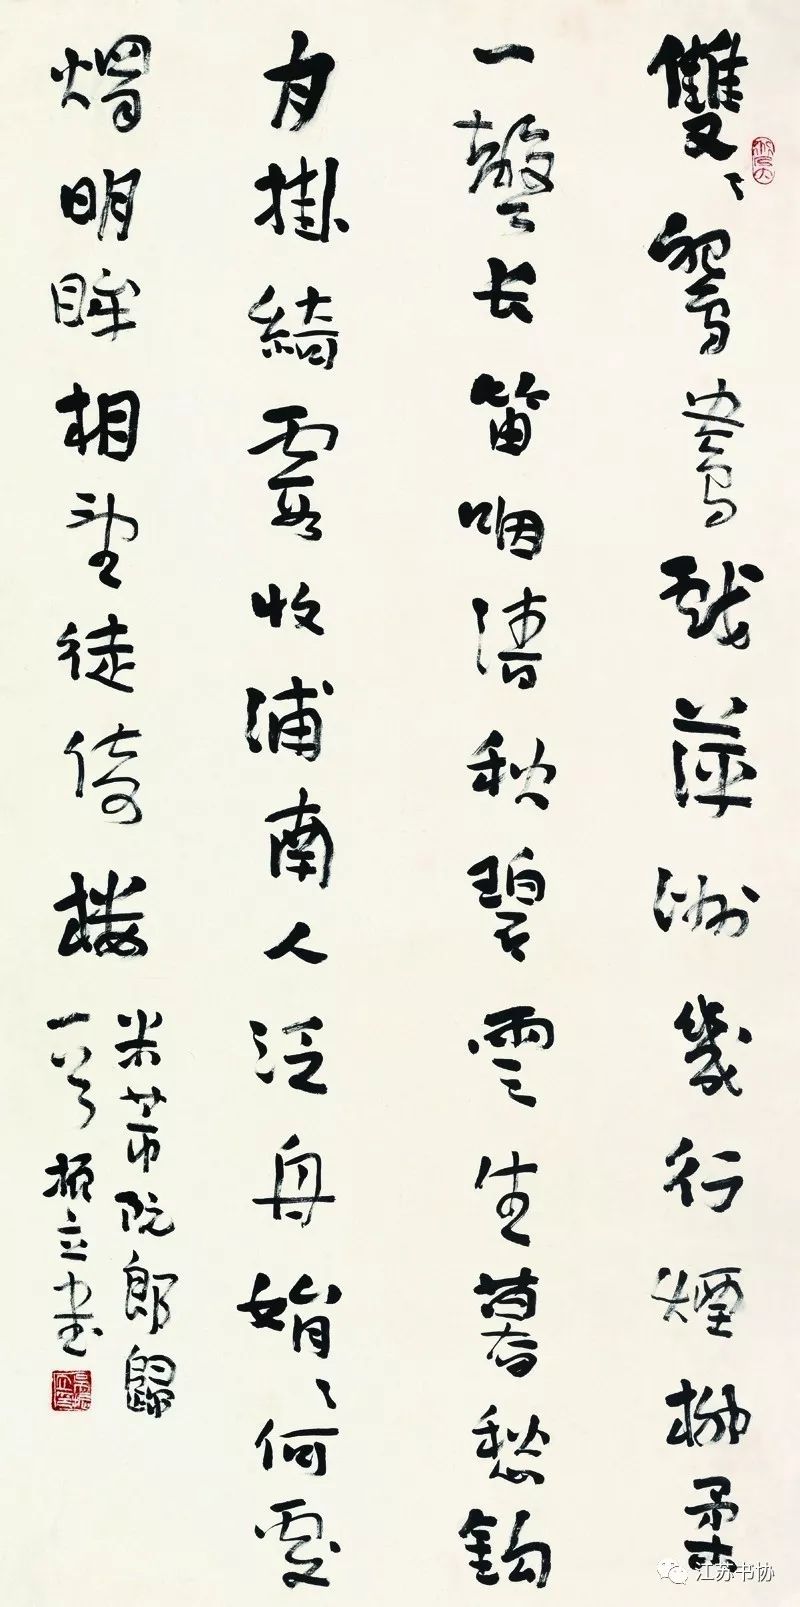 雙〻鴛鴦戲萍洲幾行煙柳柔
一聲长笛咽清秋碧雲生暮愁鈎
月掛綺霞收浦南人泛舟娟〻何處
燭明眸相望徒倚樓
米芾阮郎歸
一首振立書
江苏书协